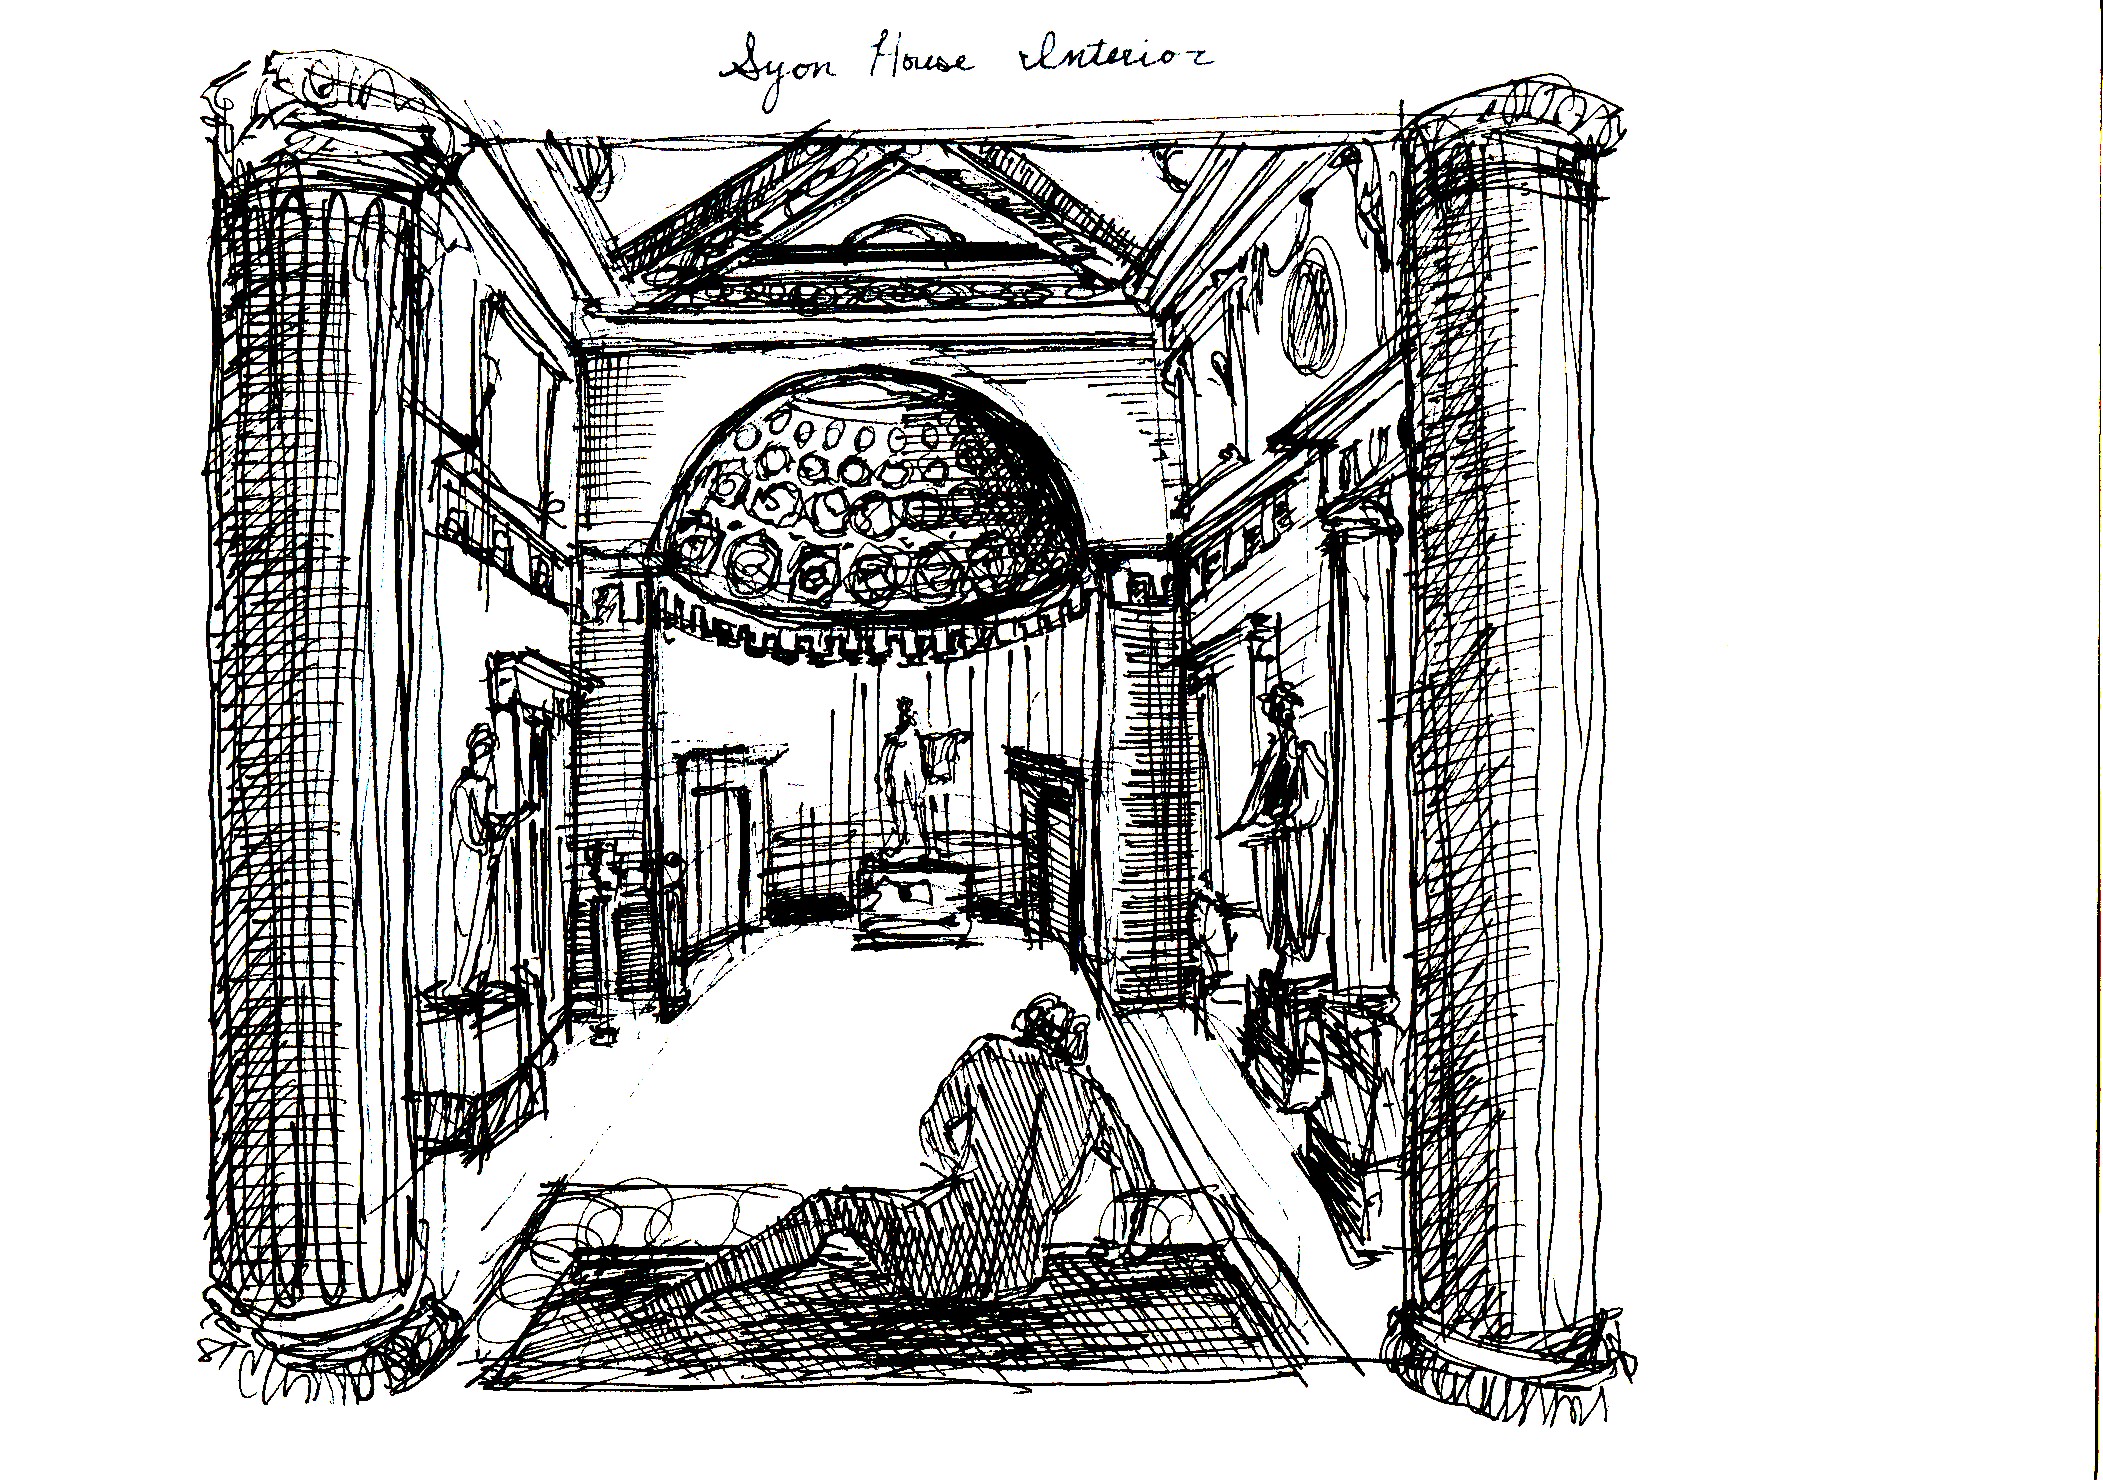 Syon House Interior